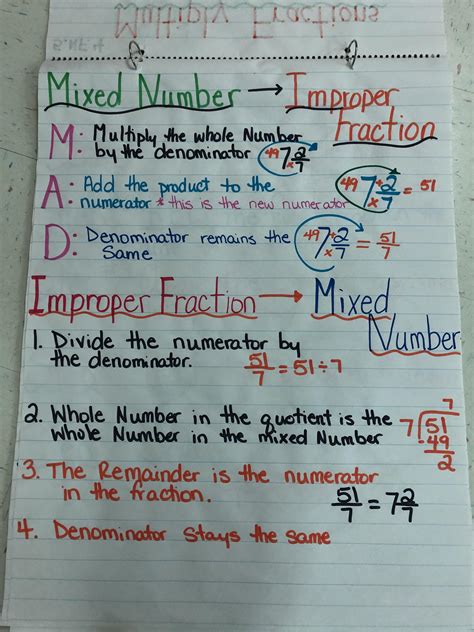 Multiply Fractions
5.NF.4
Mixed Number → Improper Fraction
M: Multiply the whole Number
by the denominator 49 7 2/7 x
A: Add the product to the
numerator * this is the new numerator 49 7 + 2/7 x = 51
D: Denominator remains the
Same 49 7 + 2/7 x = 51/7
Improper Fraction → Mixed Number
1. Divide the numerator by
the denominator. 51/7 = 51÷7
2. Whole Number in the quotient is the
whole Number in the mixed Number
7
7 51
- 49
2
3. The Remainder is the numerator
in the fraction. 51/7 = 7 2/7
4. Denominator stays the same